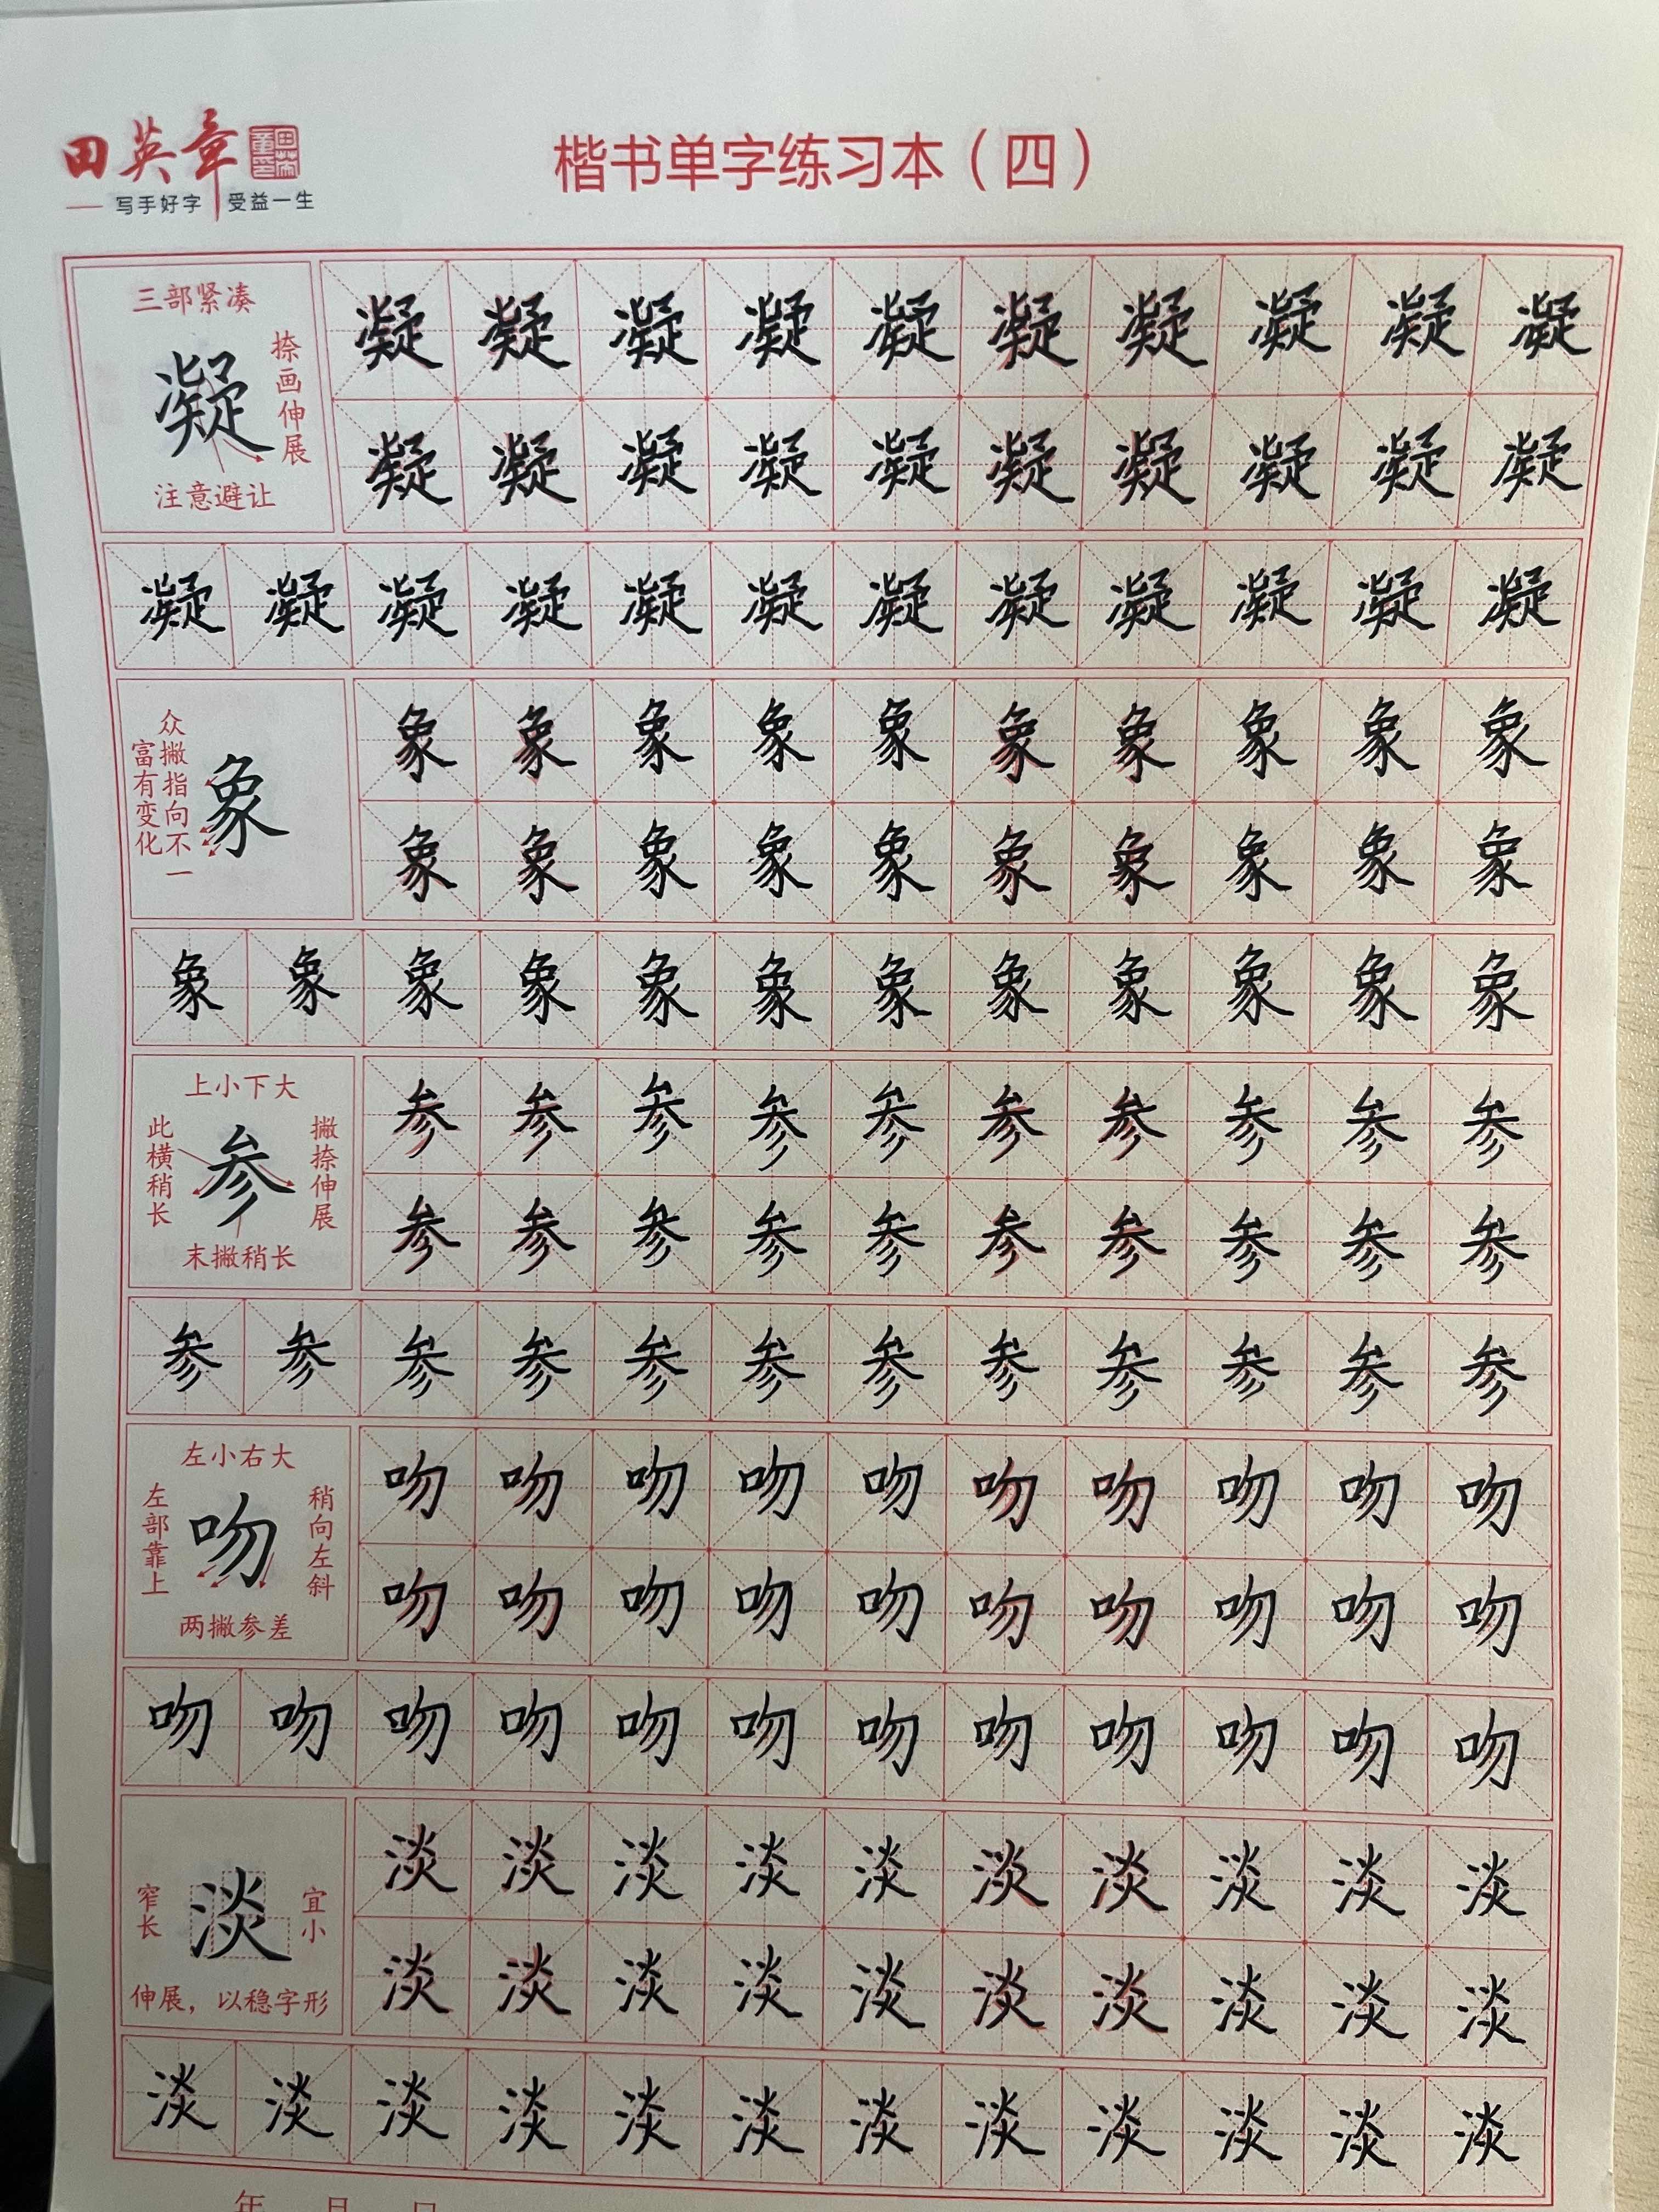 田英章
写手好字 受益一生
楷书单字练习本（四）
三部紧凑
捺画伸展
凝
注意避让
凝凝凝凝凝凝凝凝凝凝
凝凝凝凝凝凝凝凝凝凝
凝凝凝凝凝凝凝凝凝凝凝凝
众撇指向不一
富有变化
象
象象象象象象象象象象
象象象象象象象象象象
象象象象象象象象象象象象
上小下大
此横稍长
参
撇捺伸展
末撇稍长
参参参参参参参参参参
参参参参参参参参参参
参参参参参参参参参参参参
左小右大
左部靠上
吻
稍向左斜
两撇参差
吻吻吻吻吻吻吻吻吻吻
吻吻吻吻吻吻吻吻吻吻
吻吻吻吻吻吻吻吻吻吻吻吻
窄长
淡
宜小
伸展，以稳字形
淡淡淡淡淡淡淡淡淡淡
淡淡淡淡淡淡淡淡淡淡
淡淡淡淡淡淡淡淡淡淡淡淡
年 月 日